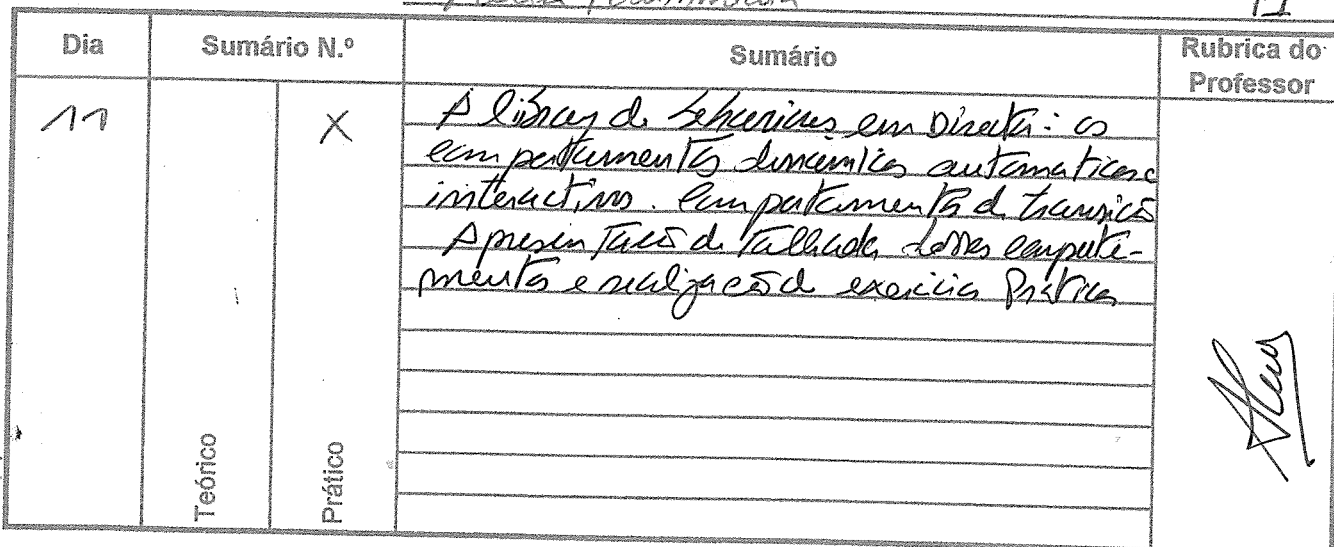 11
Dia
Sumário N.º
Sumário
Rubrica do
Professor
11
X
A library de behaviors em Director: os
comportamentos dinamicos automaticos e
interactivos. Comportamentos de transição
Apresentação detalhada desses comporta-
mentos e realização de exercicios Práticos
Teórico
Prático